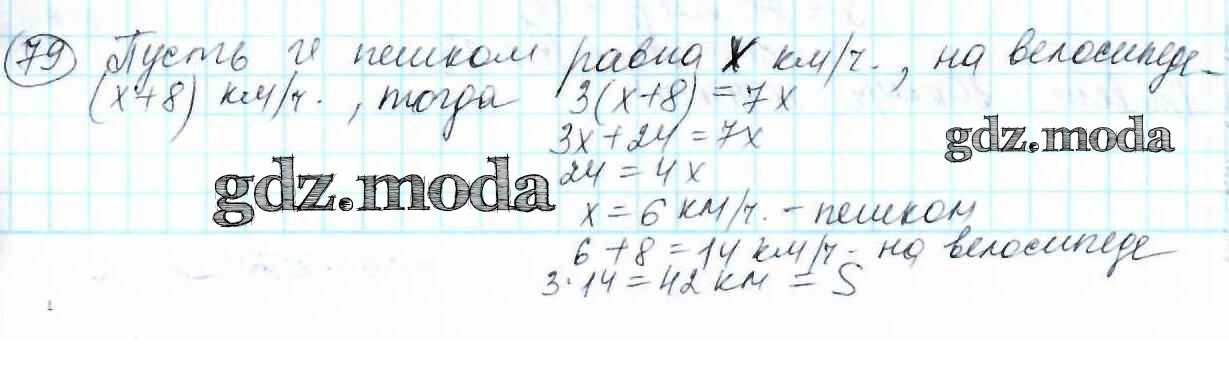 79 Пусть υ пешком равна x км/ч., на велосипеде -
(x+8) км/ч., тогда 3(x+8) = 7x
3x + 24 = 7x
gdz.moda
gdz.moda
24 = 4x
x = 6 км/ч. - пешком
6 + 8 = 14 км/ч - на велосипеде
3·14 = 42 км = S